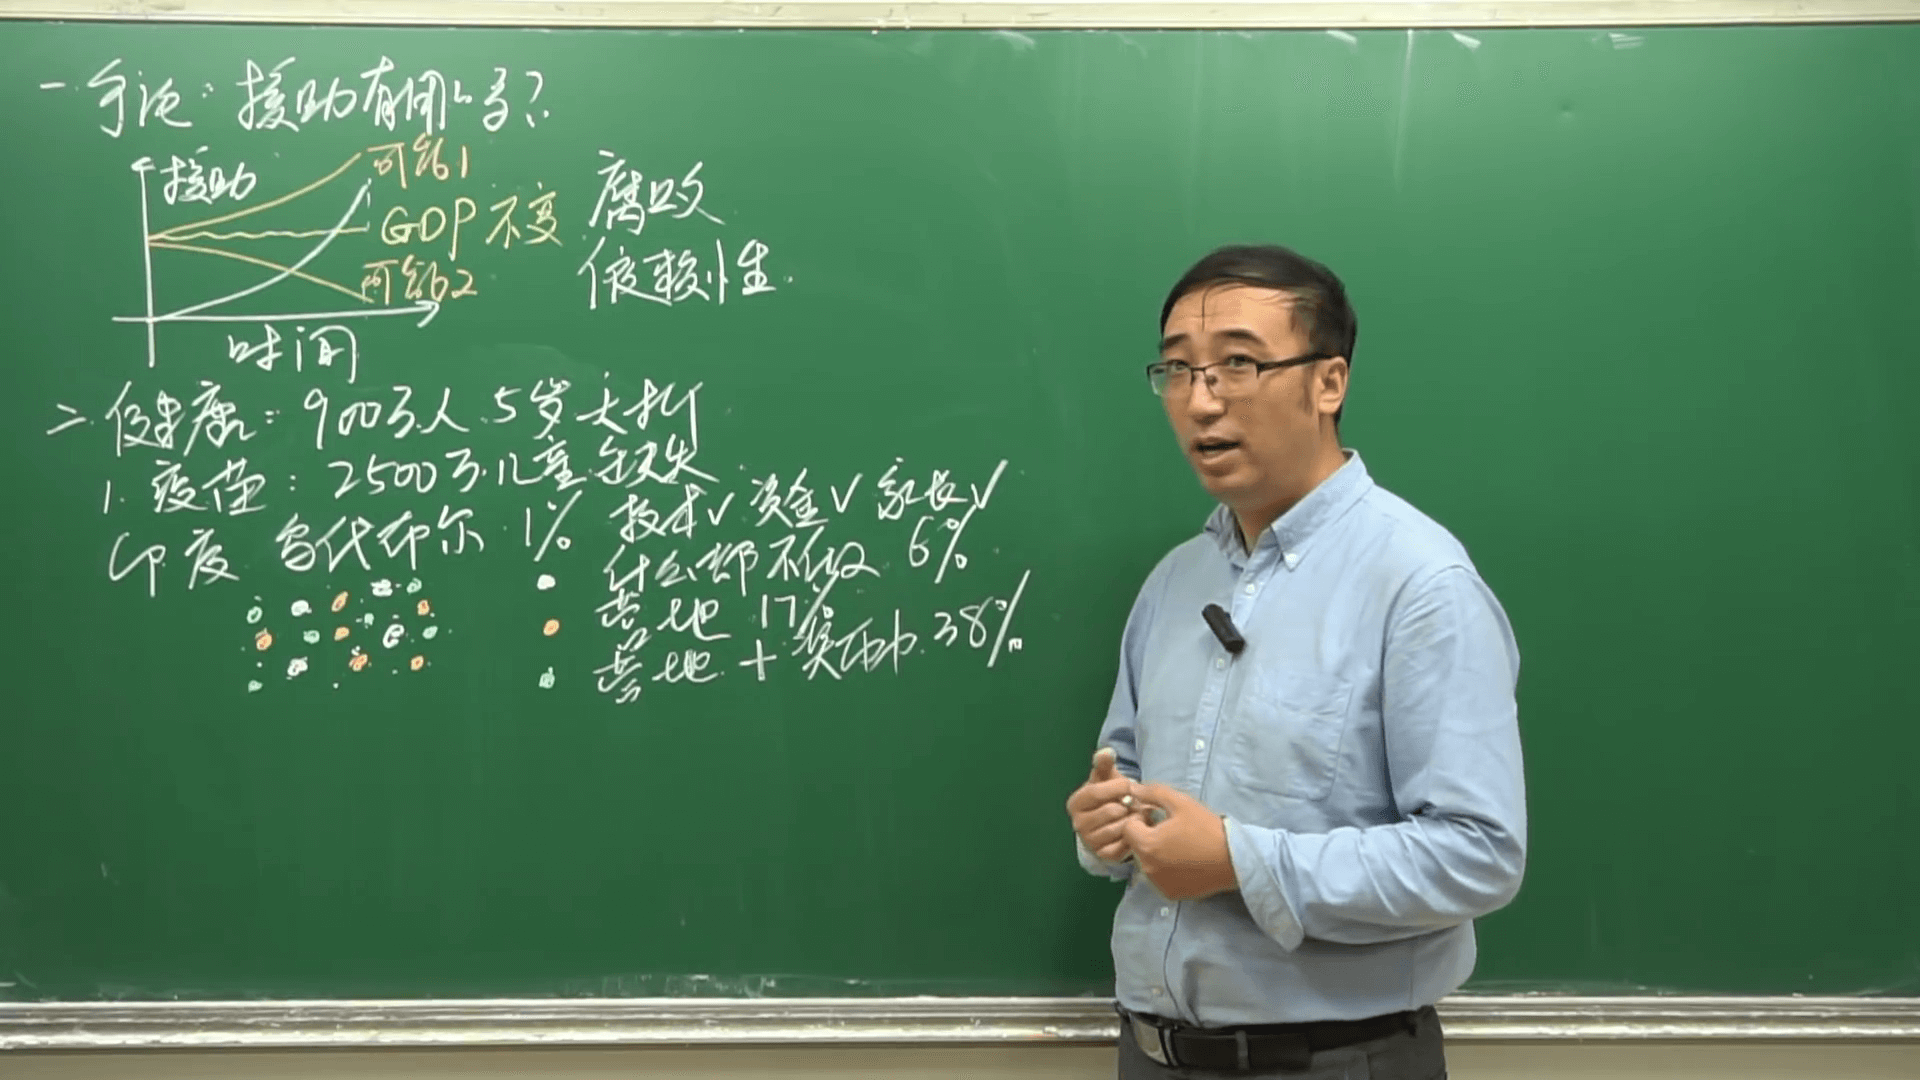 一. 争论: 援助有用吗?
援助
可能1
GDP不变
可能2
时间
腐败
依赖性
二. 健康: 900万人 5岁夭折
1. 疫苗: 2500万儿童缺失
印度 乌代布尔 1%
技术√ 资金√ 家长√
什么都不做 6%
营地 17%
营地 + 奖励 38%